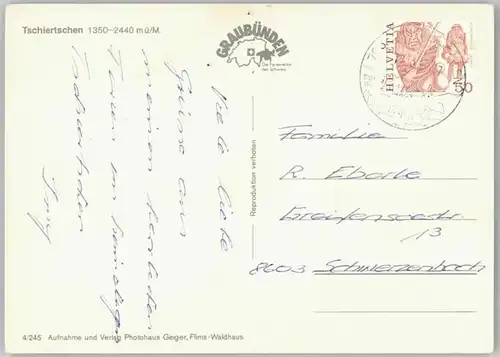 Tschiertschen 1350-2440 m ü/M.
GRAUBÜNDEN
Die Ferienecke
der Schweiz
HELVETIA
50
Viele liebe
Grüsse aus
meinen
Tschiertschen
Reproduktion verboten
Familie
R. Eberle
Greifenseestr.
13
8603 Schwerzenbach
4/245 Aufnahme und Verlag Photohaus Geiger, Flims-Waldhaus